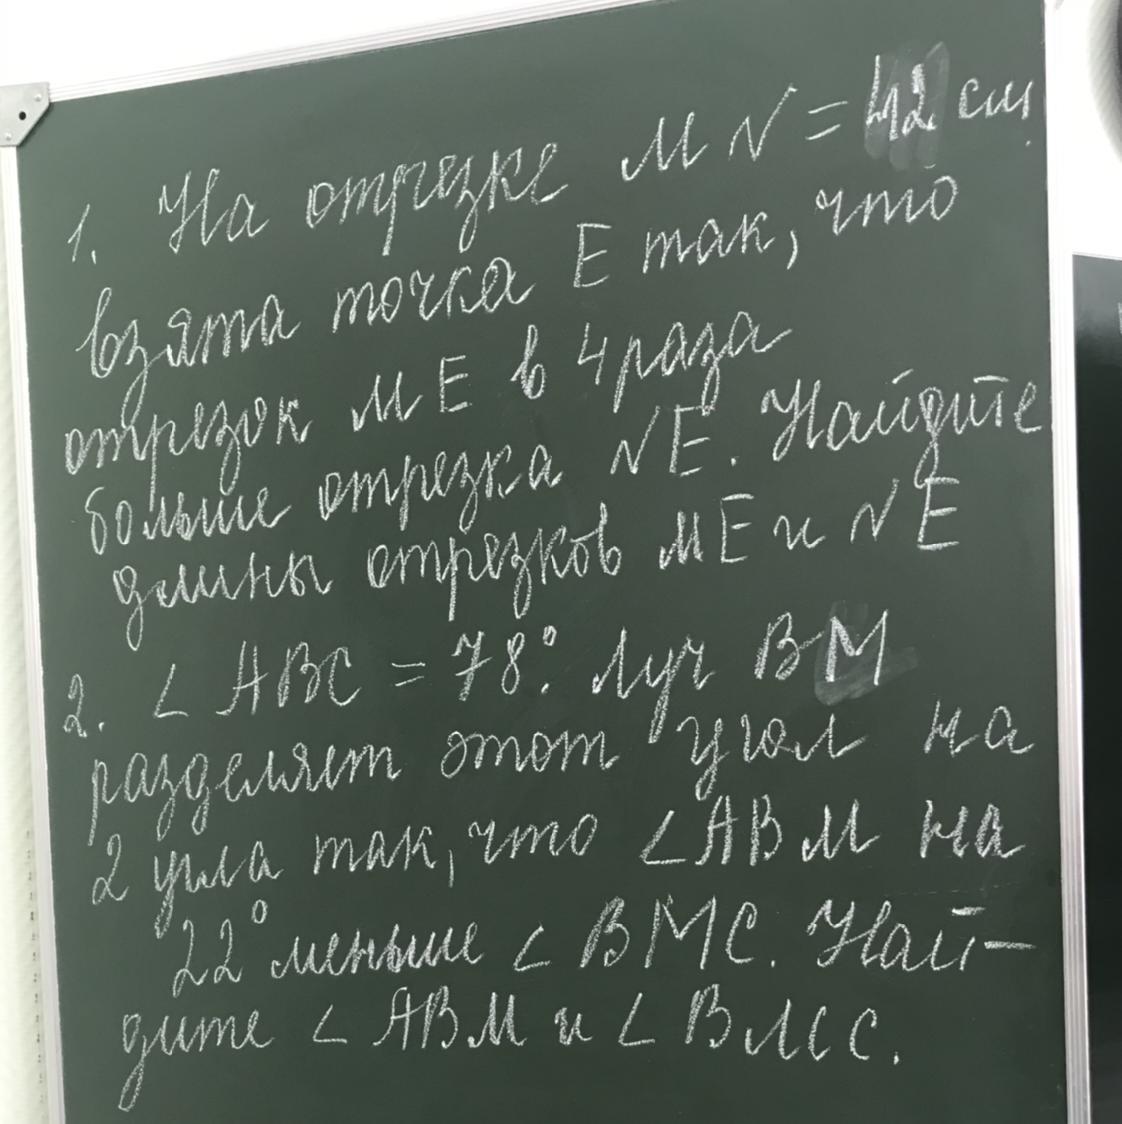 1. На отрезке MN = 42 см
взята точка E так, что
отрезок ME в 4 раза
больше отрезка NE. Найдите
длины отрезков ME и NE
2. ∠ ABC = 78°. Луч BM
разделяет этот угол на
2 угла так, что ∠ABM на
22° меньше ∠ BMC. Най-
дите ∠ ABM и ∠ BMC.